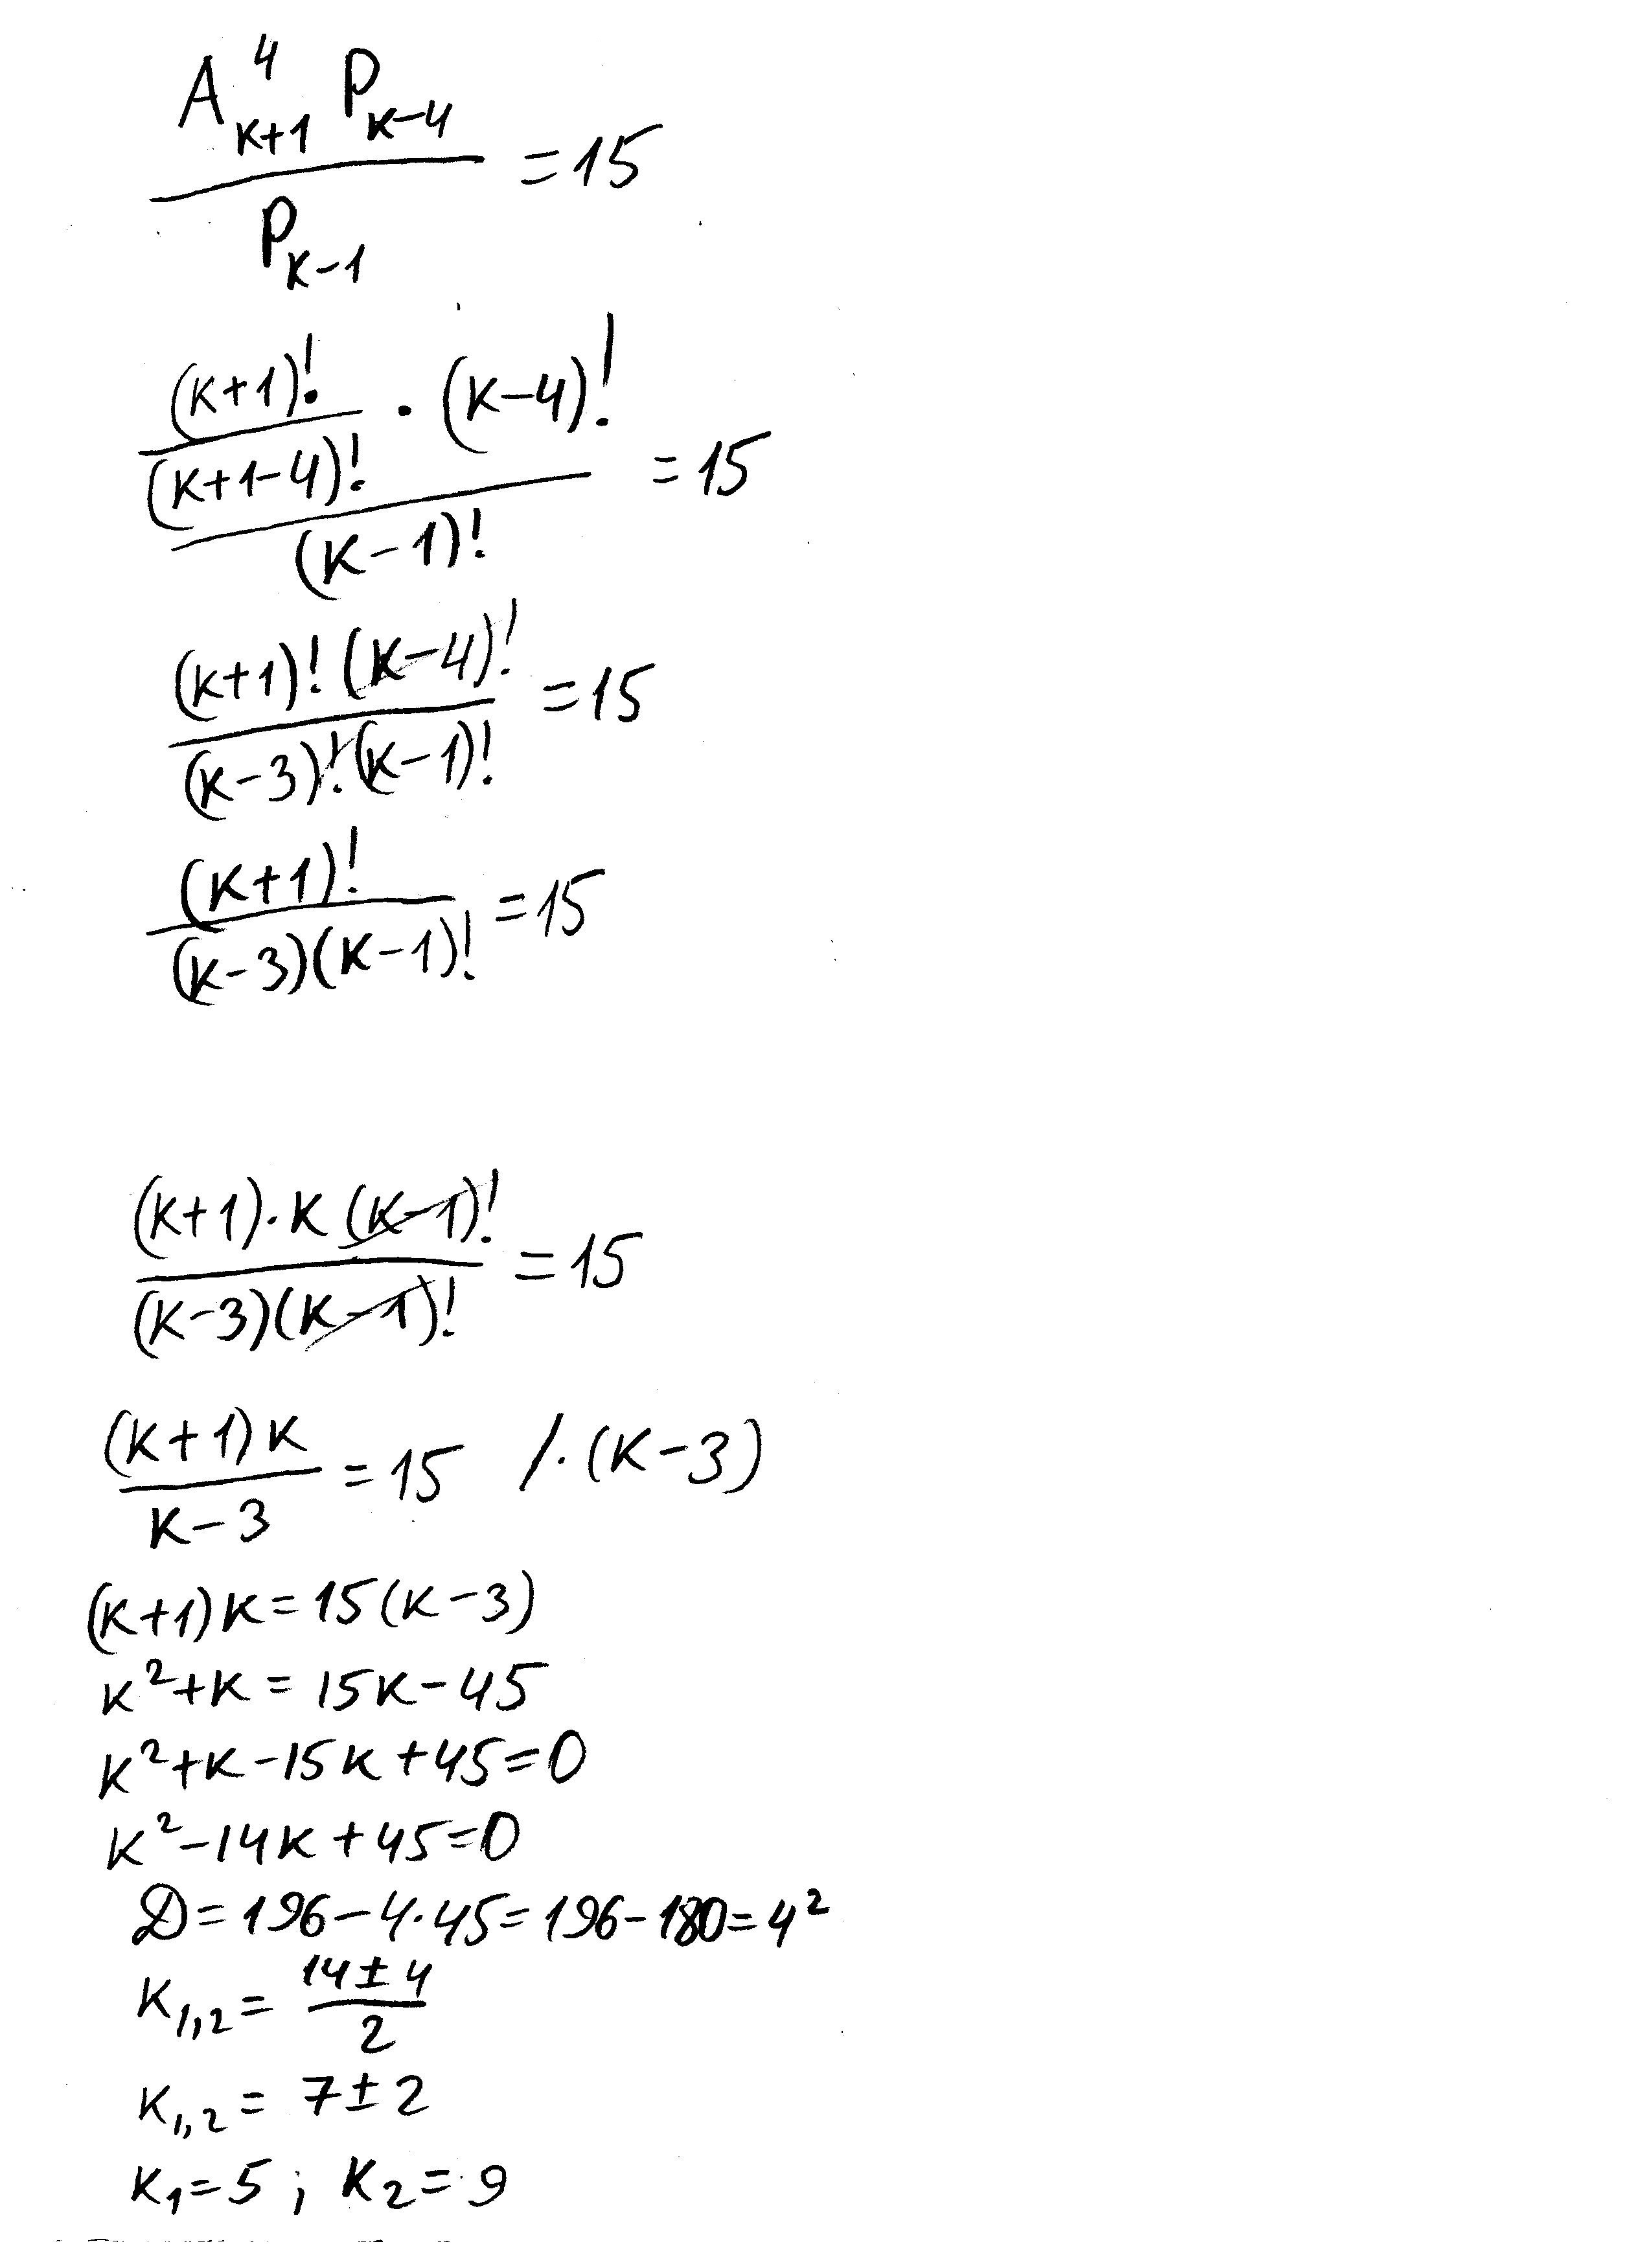 A⁴ₖ₊₁ Pₖ₋₄ / Pₖ₋₁ = 15
(k+1)! / (k+1-4)! · (k-4)! / (k-1)! = 15
(k+1)! (k-4)! / (k-3)! (k-1)! = 15
(k+1)! / (k-3)(k-1)! = 15
(k+1)·k (k-1)! / (k-3)(k-1)! = 15
(k+1)k / k-3 = 15 /·(k-3)
(k+1)k = 15(k-3)
k²+k = 15k-45
k²+k-15k+45=0
k²-14k+45=0
D=196-4·45=196-180=4²
k₁,₂ = 14±4 / 2
k₁,₂ = 7±2
k₁=5 ; k₂=9